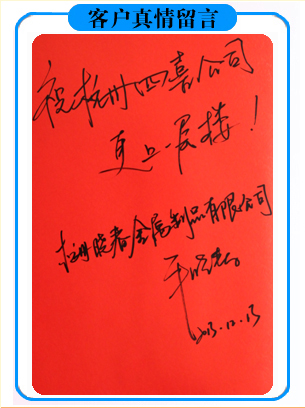 客户真情留言
祝杭州四喜公司
更上一层楼!
杭州晓春金属制品有限公司
2013.12.13